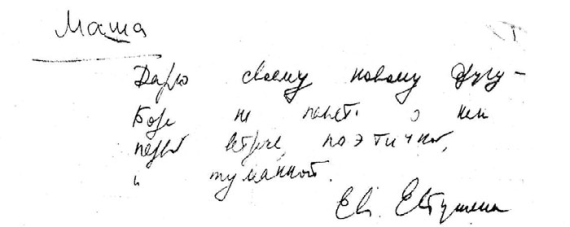 Маша
Дарю своему новому другу –
Боре на память о нем
первой встрече, поэтичной,
и туманной.
Ев. Евтушенко